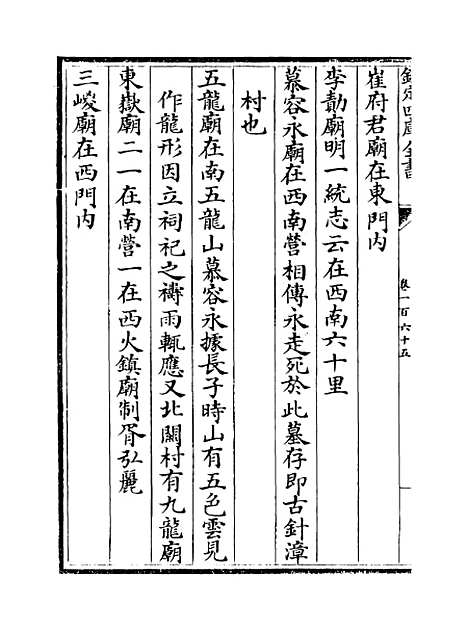 欽定四庫全書
卷一百六十五
崔府君廟在東門内
李勣廟明一統志云在西南六十里
慕容永廟在西南營相傳永走死於此墓存即古針漳
村也
五龍廟在南五龍山慕容永據長子時山有五色雲見
作龍形因立祠祀之禱雨輒應又北關村有九龍廟
東嶽廟二一在南營一在西火鎮廟制胥弘麗
三嵕廟在西門内